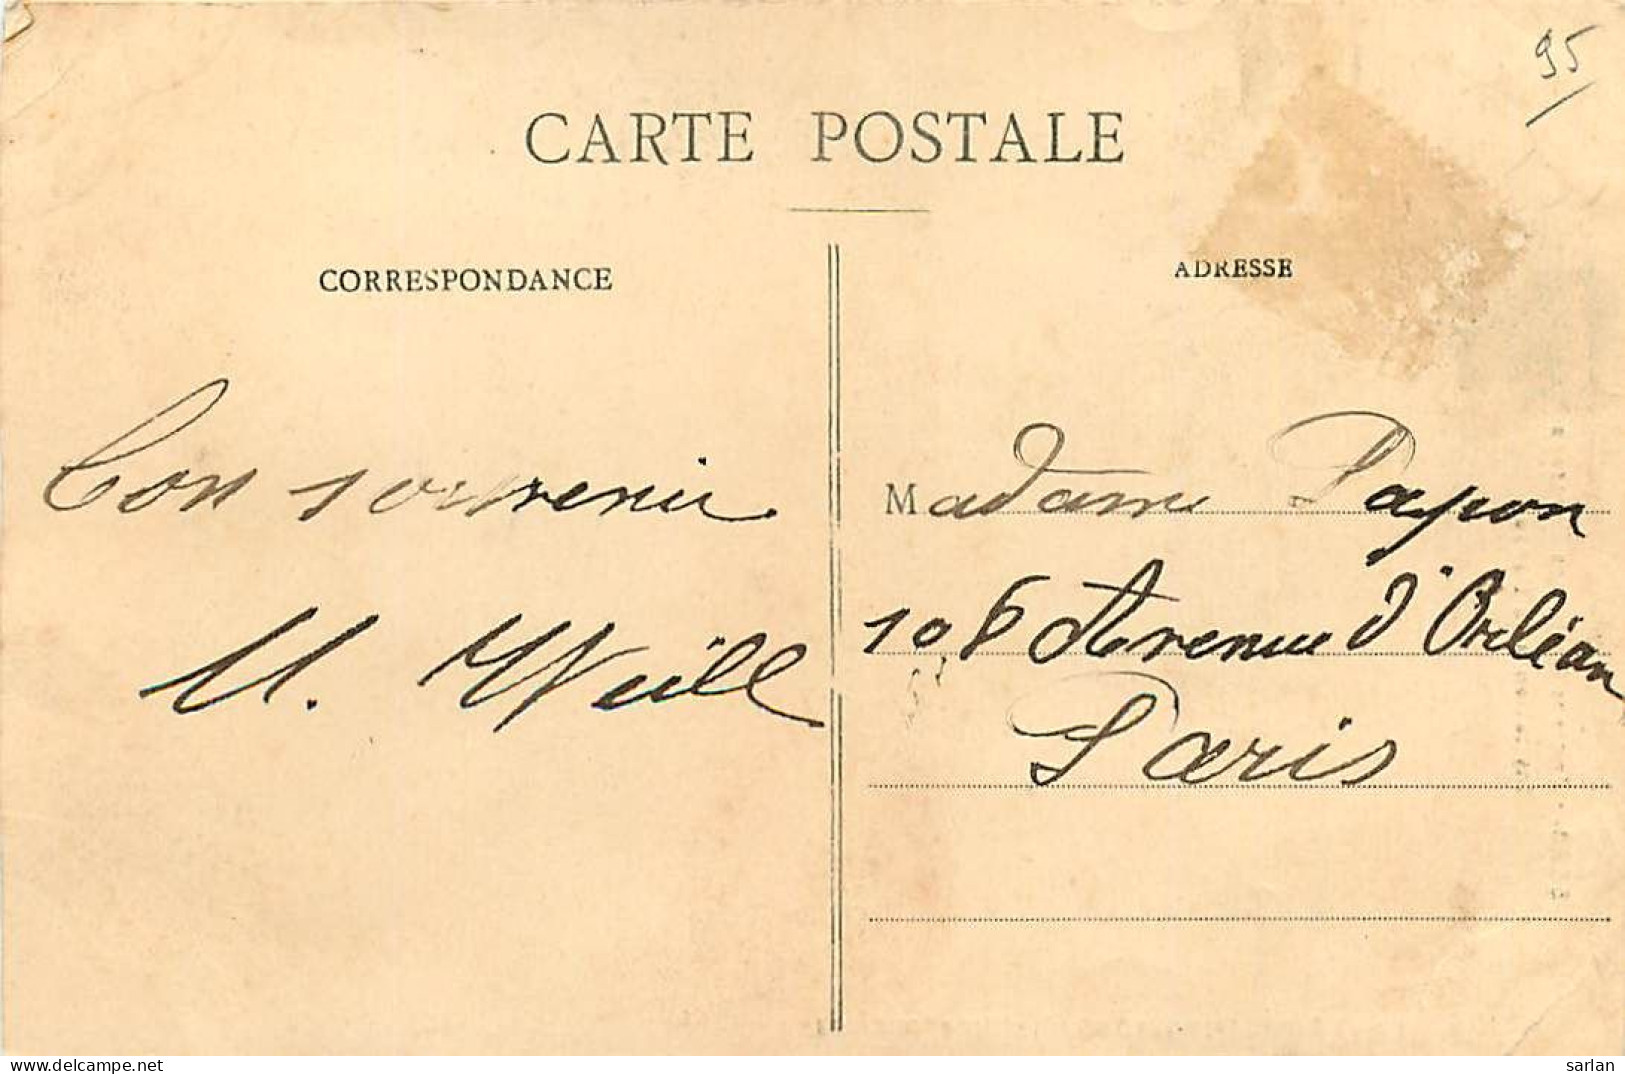 95
CARTE POSTALE
CORRESPONDANCE
ADRESSE
Bon souvenir
M. Weill
Madame Papon
106 Avenue d'Orléan
Paris
www.delcampe.net
sarlan